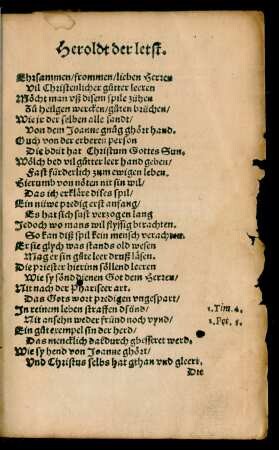 Heroldt der letst.
Ehrsammen/frommen/lieben Herren
Vil Christenlicher gůtter leeren
Möcht man vß disem spile zühen
Zů heilgen wercken/gůten brüchen/
Wie jr der selben alle sandt/
Von dem Joanne gnůg ghört hand.
Ouch von der erberen person
Die bdüt hat Christum Gottes Sun.
Wölch bed vil gůtter leer hand geben/
Fast fürderlich zum ewigen leben.
Hierumb von nöten nit sin wil/
Das ich erkläre dises spil/
Ein nüwe predig erst anfang/
Es hat sich sust verzogen lang
Jedoch wo mans wil flyssig btrachten.
So kan diß spil kein mensch verachten
Er sie glych was stands old wesen
Mag er sin gůte leer druß läsen.
Die priester hierinn söllend leeren
Wie sy sönd dienen Got dem Herren/
Nit nach der Phariseer art.
Das Gots wort predigen vngespart/
In reinem leben straffen dsünd/
Nit ansehn weder fründ noch vynd/
Ein gůt exempel sin der herd/
Das mencklich dardurch gbesseret werd.
Wie sy hend von Joanne ghört/
Vnd Christus selbs hat gthan vnd gleert.
1. Tim. 4.
1. Pet. 5.
Die